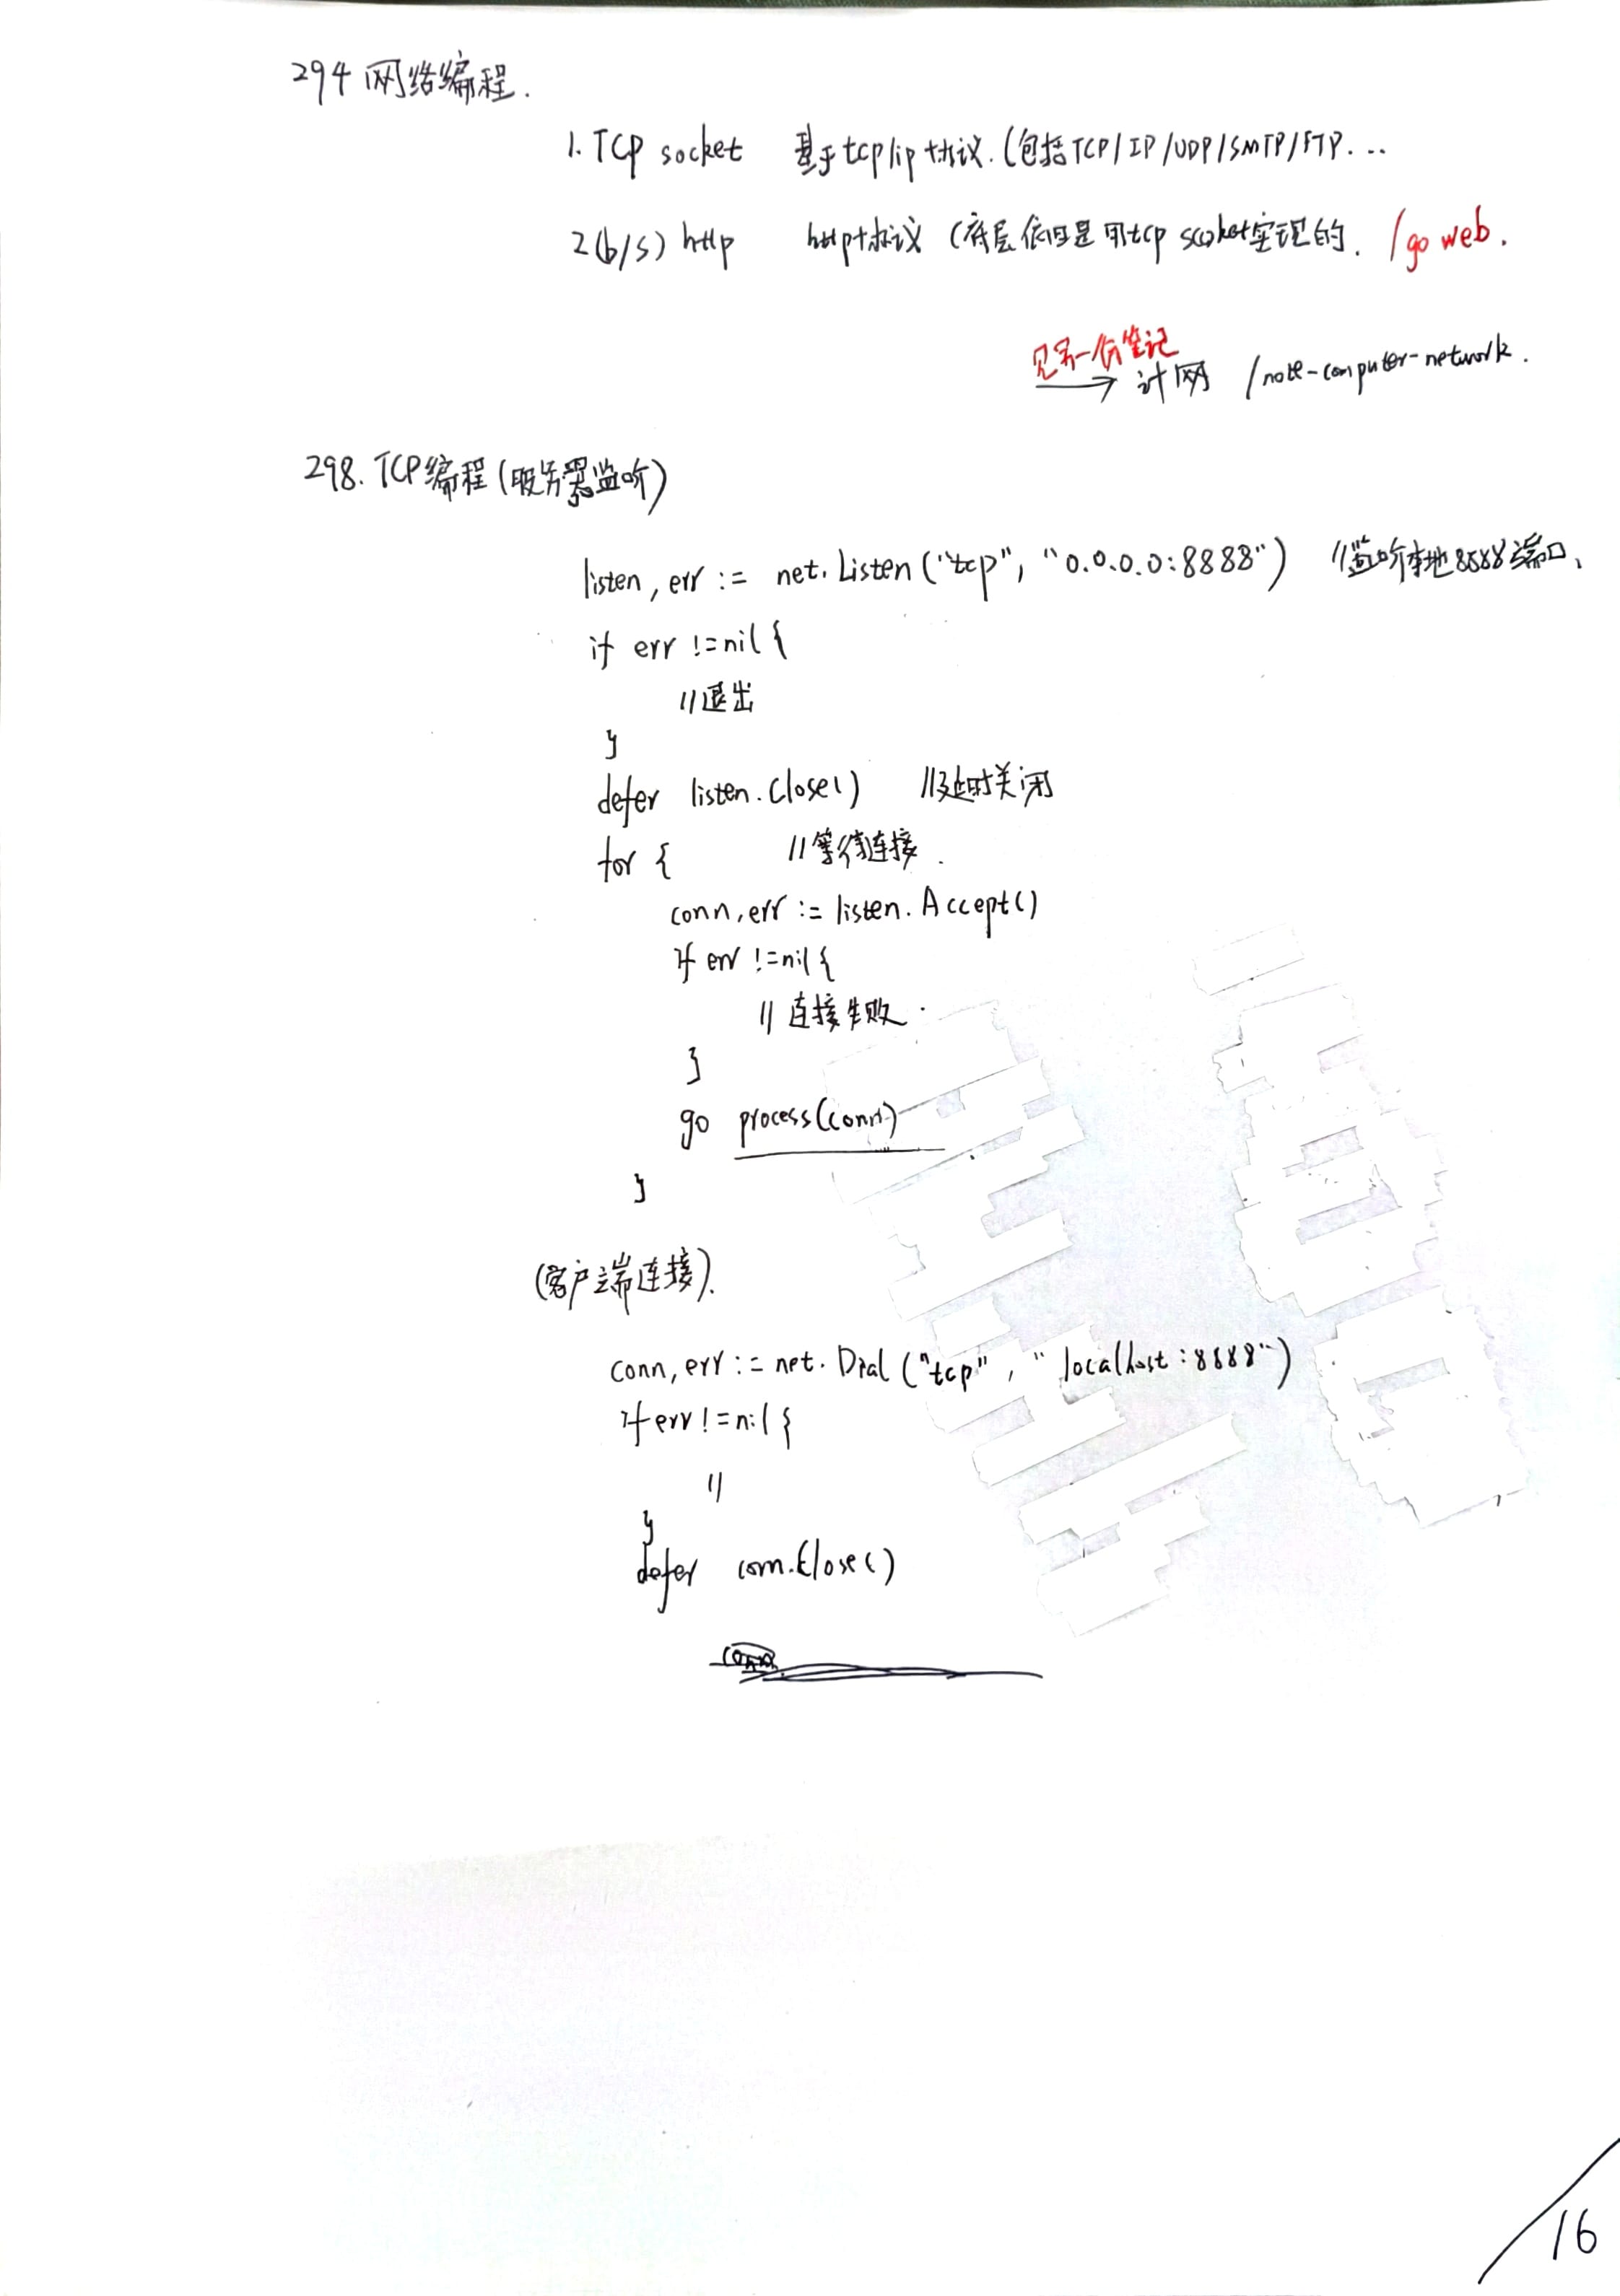 294 网络编程.
1. TCP socket 基于tcp/ip协议.(包括TCP/IP/UDP/SMTP/FTP...
2(b/s) http http协议 (底层依旧是用tcp socket实现的. /go web.
见另一份笔记
→ 计网 /note-computer-network.
298. TCP编程(服务器监听)
listen, err := net.Listen("tcp", "0.0.0.0:8888") //监听本地8888端口,
if err !=nil {
//退出
}
defer listen.Close() //延时关闭
for { //等待连接.
conn, err := listen.Accept()
if err !=nil {
// 连接失败.
}
go process(conn)
}
(客户端连接).
conn, err := net.Dial("tcp", "localhost:8888")
if err != nil {
//
}
defer conn.Close()
16